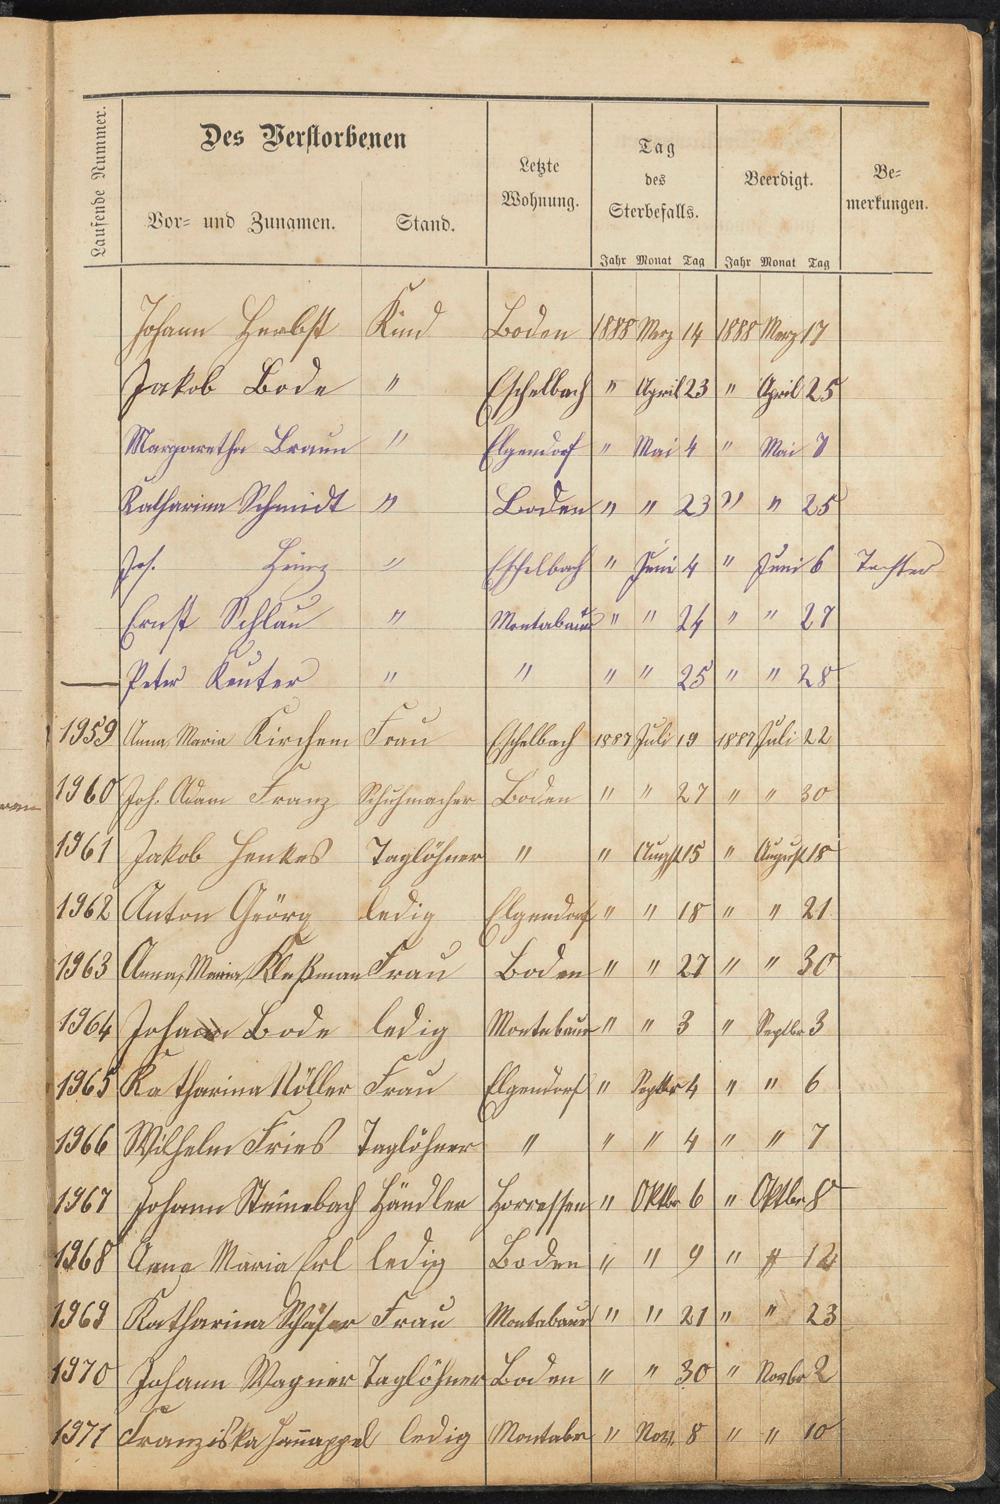 Laufende Nummer.
Des Verstorbenen
Vor- und Zunamen.
Stand.
Letzte
Wohnung.
Tag
des
Sterbefalls.
Beerdigt.
Be-
merkungen.
Jahr Monat Tag Jahr Monat Tag
Johann Herbst Kind Boden 1888 Merz 14 1888 Merz 17
Jakob Bode " Eschelbach " April 23 " April 25
Margaretha Braun " Elgendorf " Mai 4 " Mai 7
Katharina Schmidt " Boden " " 23 " " 25
Jos. Heinz " Eschelbach " Juni 4 " Juni 6
Ernst Schlau " Montabaur " " 24 " " 27
Peter Reuter " " " " 25 " " 28
1959 Anna Maria Kirchem Frau Eschelbach 1887 Juli 19 1887 Juli 22
1960 Joh. Adam Franz Schuhmacher Boden " " 27 " " 30
1961 Jakob Henkes Taglöhner " " Augst 15 " August 18
1962 Anton Geörg ledig Elgendorf " " 18 " " 21
1963 Anna Maria Kleßman Frau Boden " " 27 " " 30
1964 Johann Bode ledig Montabaur " " 3 " Septbr 3
1965 Katharina Nöller Frau Elgendorf " Septbr 4 " " 6
1966 Wilhelm Fries Taglöhner " " " 4 " " 7
1967 Johann Steinebach Händler Horressen " Oktbr 6 " Oktbr 8
1968 Anna Maria Erl ledig Boden " " 9 " " 12
1969 Katharina Schäfer Frau Montabaur " " 21 " " 23
1970 Johann Wagner Taglöhner Boden " " 30 " Novbr 2
1971 Franziska Hannappel ledig Montabr " Nov. 8 " " 10